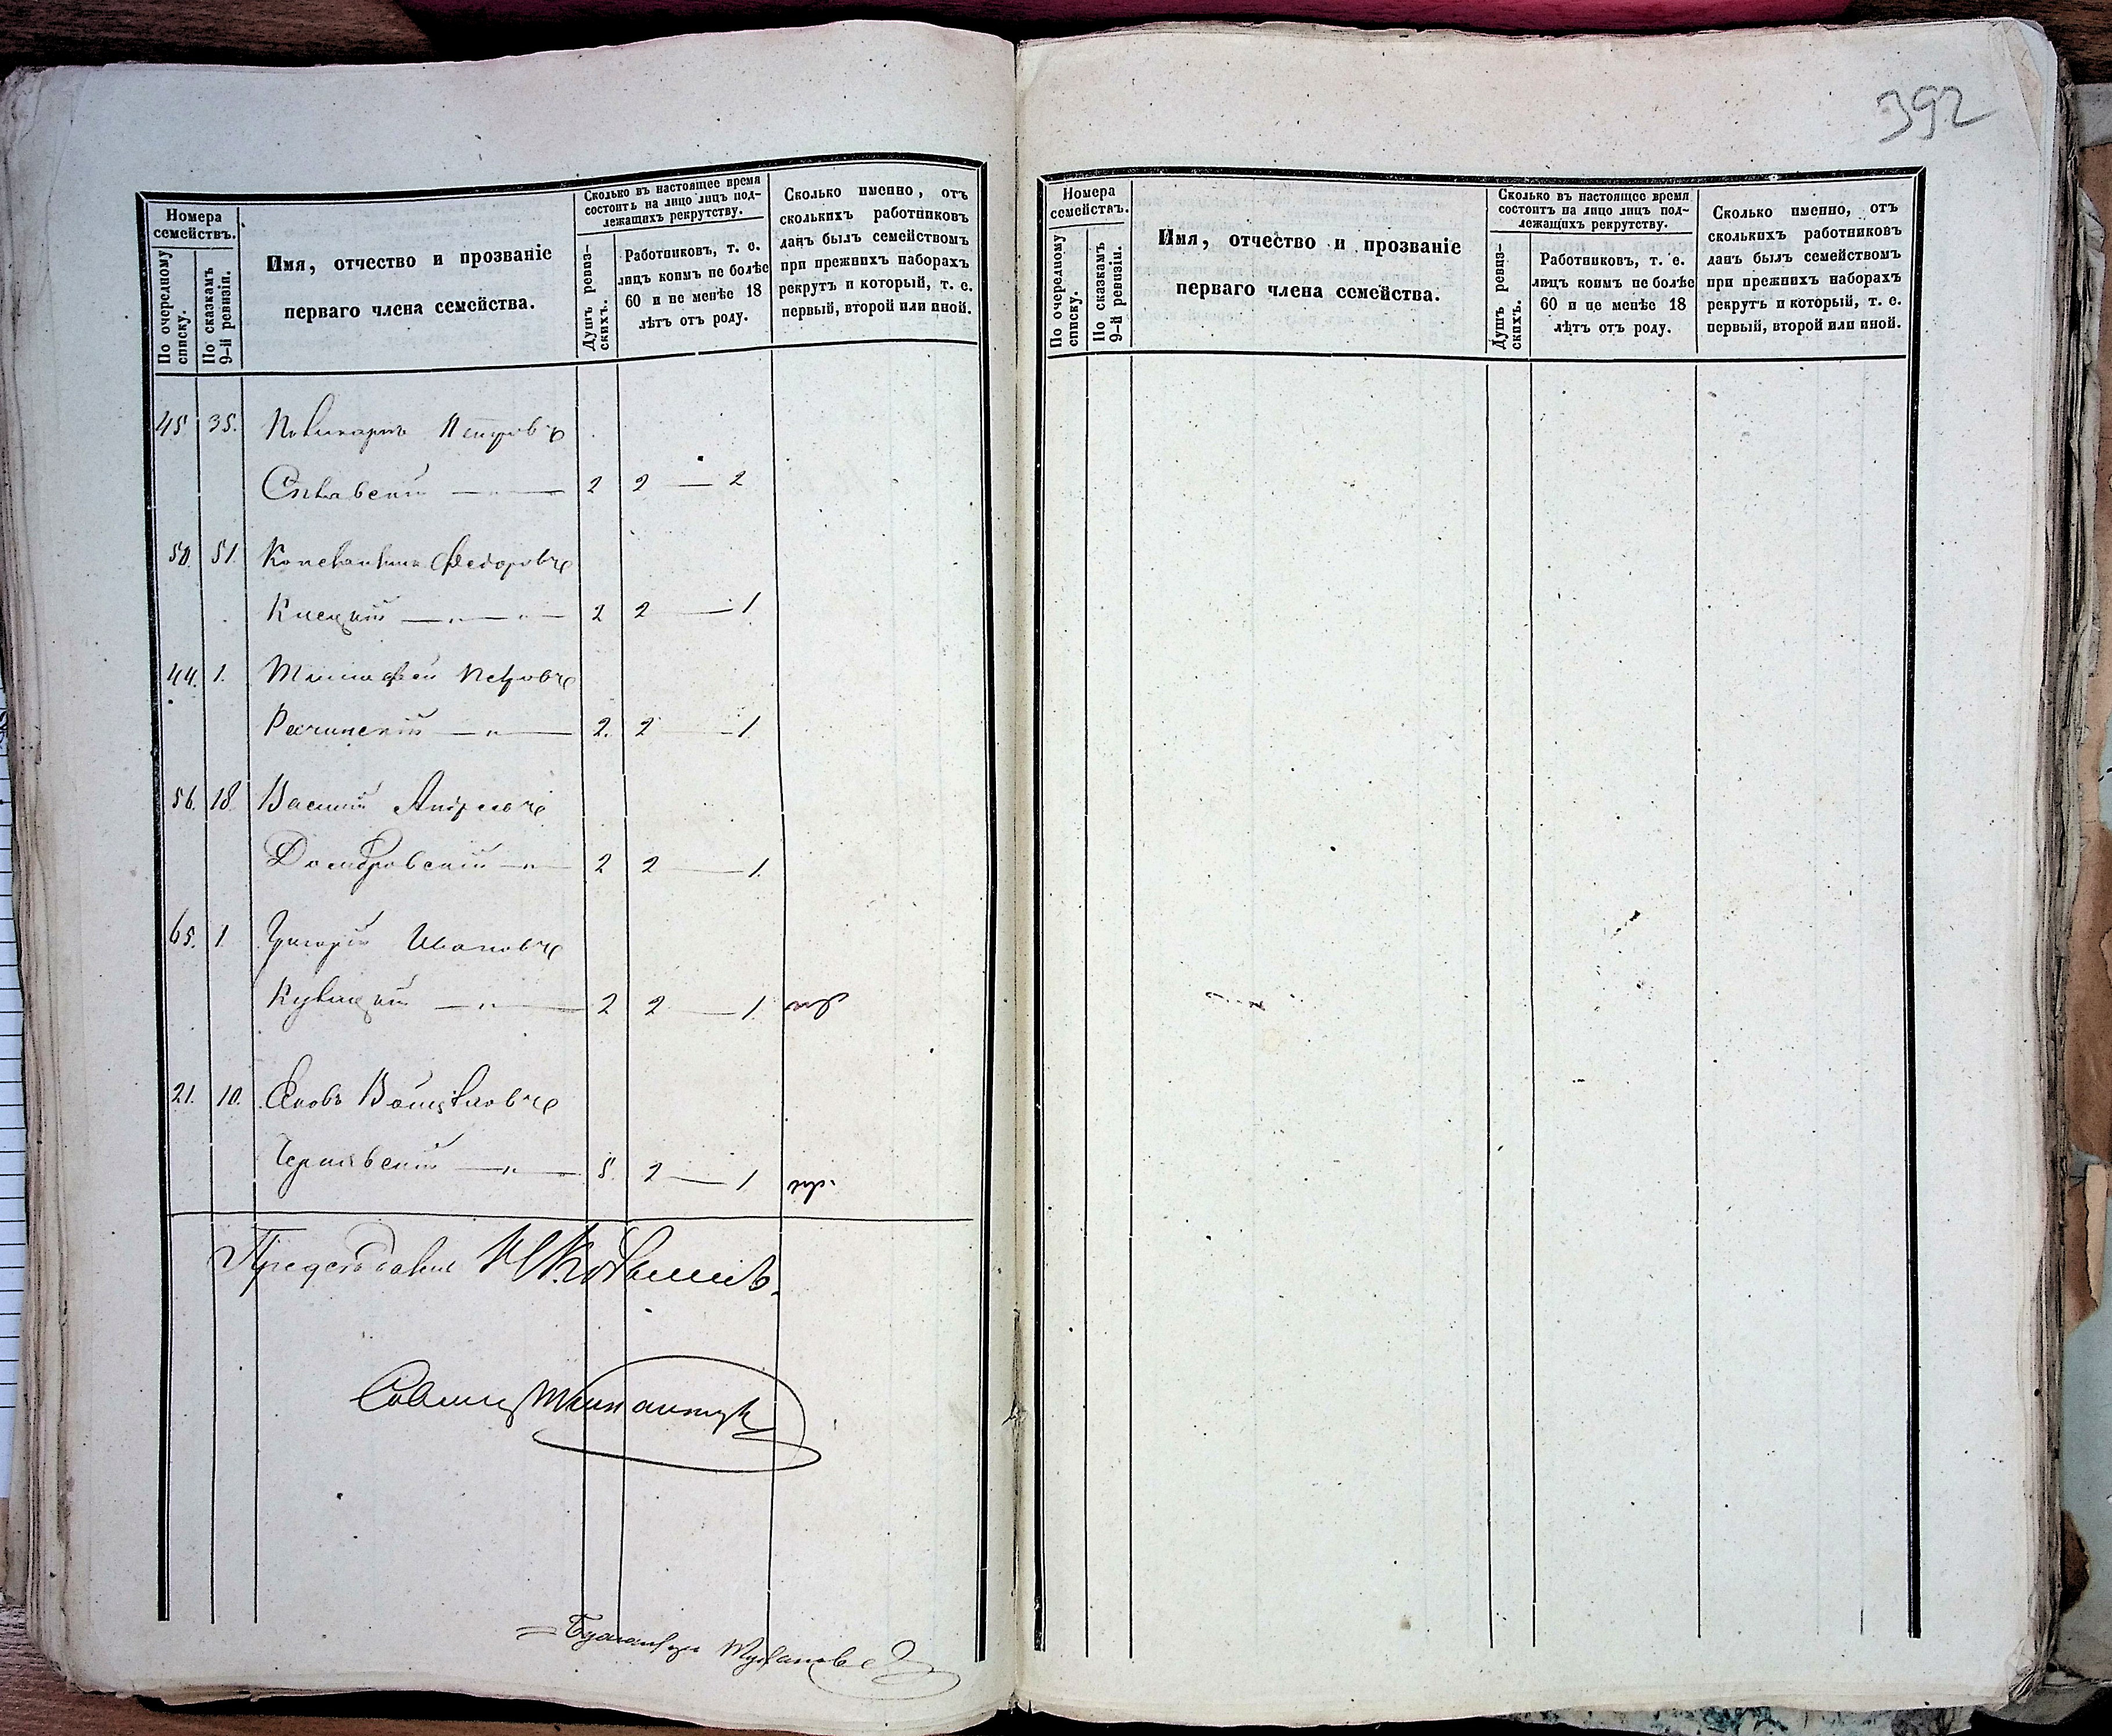 392
Номера
семействъ.
По очередному
списку.
По сказкамъ
9-й ревизіи.
Имя, отчество и прозваніе
перваго члена семейства.
Сколько въ настоящее время
состоитъ на лицо лицъ под-
лежащихъ рекрутству.
Душъ ревиз-
скихъ.
Работниковъ, т. е.
лицъ коимъ не болѣе
60 и не менѣе 18
лѣтъ отъ роду.
Сколько именно, отъ
сколькихъ работниковъ
данъ былъ семействомъ
при прежнихъ наборахъ
рекрутъ и который, т. е.
первый, второй или иной.
45. 35. Поликарпъ Петровъ
2 2 — 2
50. 51. Константинъ Федоровъ
Клецкій 2 2 — 1
44. 1. Тимофей Петровъ
Речинскій 2. 2 — 1
56. 18. Василій
Домбровскій 2 2 — 1.
65. 1. Григорій Ивановъ
2 2 — 1.
21. 10. Яковъ
Чернявскій 5. 2 — 1.
Номера
семействъ.
По очередному
списку.
По сказкамъ
9-й ревизіи.
Имя, отчество и прозваніе
перваго члена семейства.
Сколько въ настоящее время
состоитъ на лицо лицъ под-
лежащихъ рекрутству.
Душъ ревиз-
скихъ.
Работниковъ, т. е.
лицъ коимъ не болѣе
60 и не менѣе 18
лѣтъ отъ роду.
Сколько именно, отъ
сколькихъ работниковъ
данъ былъ семействомъ
при прежнихъ наборахъ
рекрутъ и который, т. е.
первый, второй или иной.